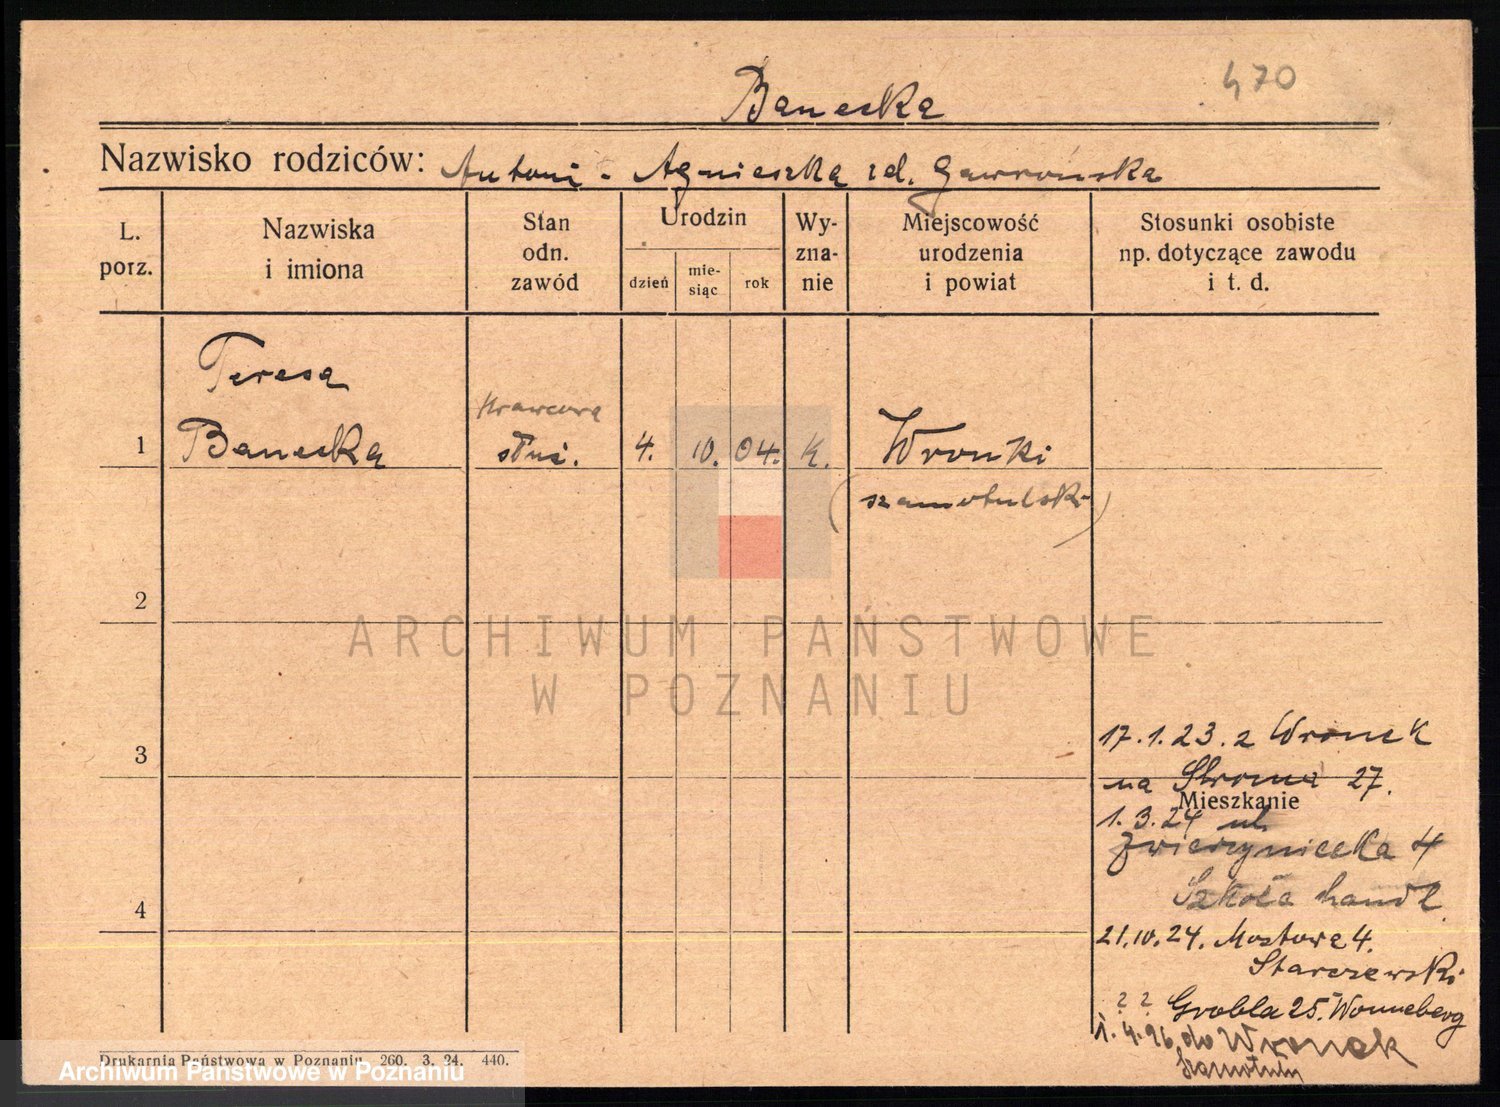 470
Banecka
Nazwisko rodziców: Antoni - Agnieszka zd. Gawrońska
L. porz.
Nazwiska i imiona
Stan odn. zawód
Urodzin
dzień
mie-siąc
rok
Wy-zna-nie
Miejscowość urodzenia i powiat
Stosunki osobiste np. dotyczące zawodu i t. d.
Teresa
krawcowa
1 Banecka służ. 4. 10. 04. K. Wronki
(szamotulski)
2
ARCHIWUM PAŃSTWOWE
W POZNANIU
17.1.23. z Wronek
3
na Stroma 27.
Mieszkanie
1.3.24 ul.
Zwierzyniecka 4
Szkoła handl.
4
21.10.24. Mostowa 4.
Starczewski
? ? Grobla 25. Wonneberg
1.4.26 do Wronek
Szamotuły
Drukarnia Państwowa w Poznaniu 260. 3. 24. 440.
Archiwum Państwowe w Poznaniu